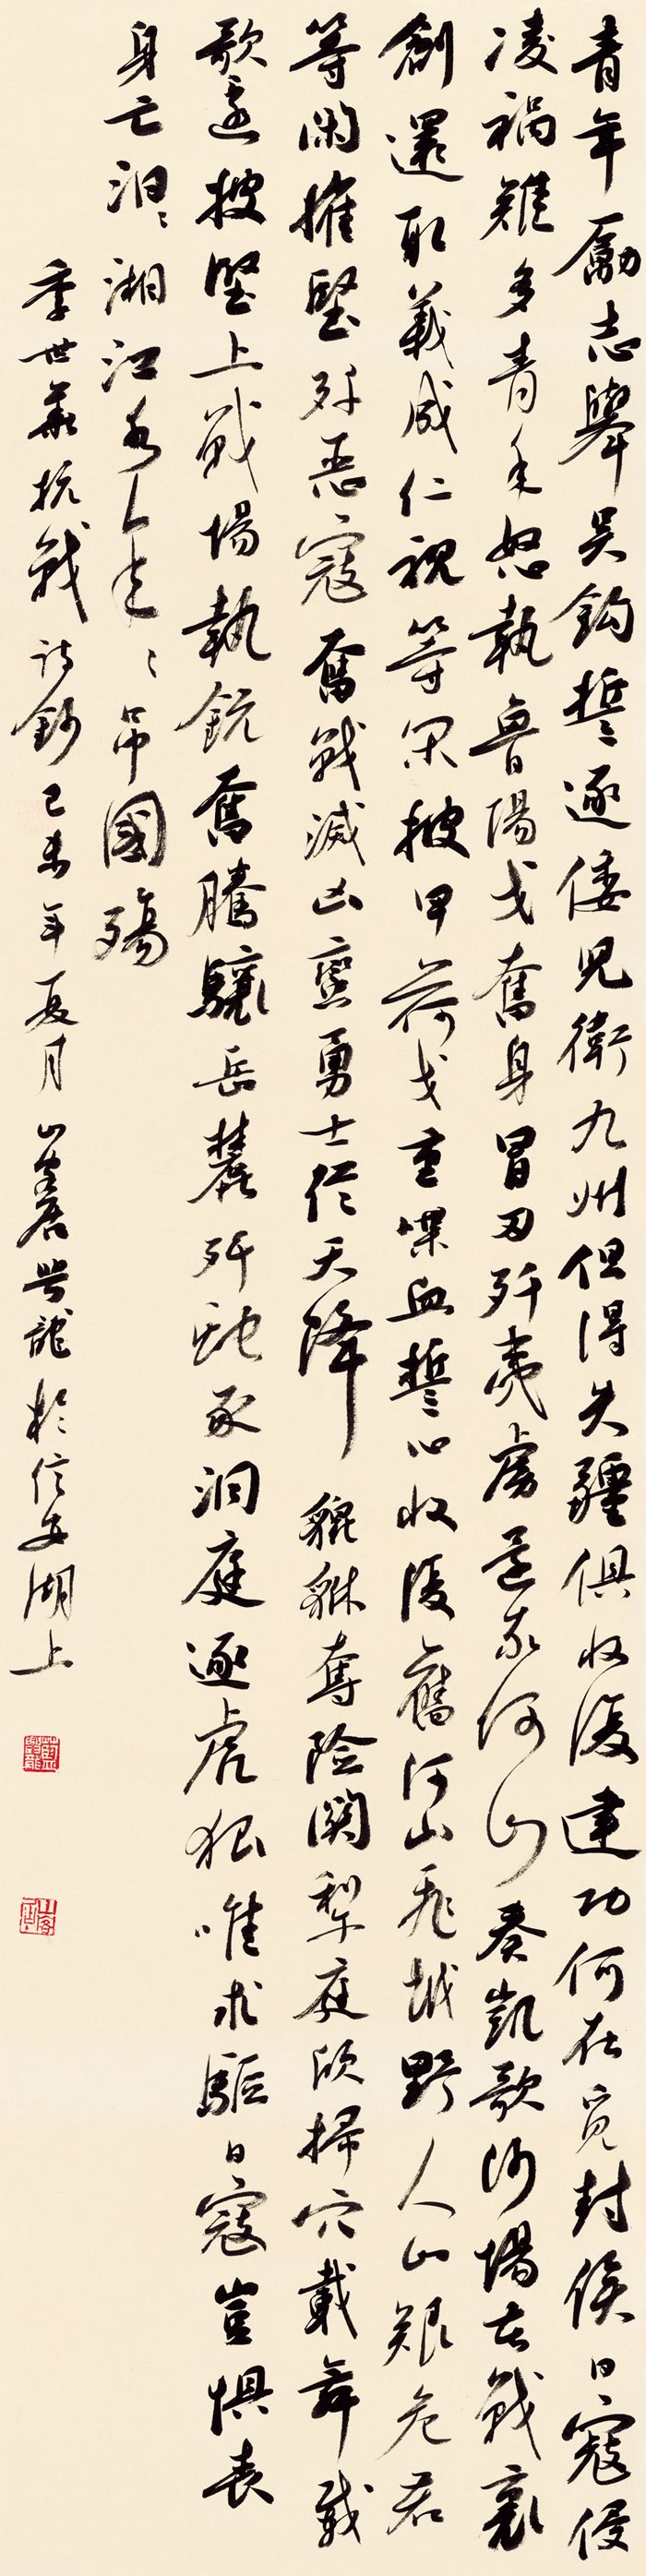 青年勵志舉吳鈎誓逐倭兒衛九州但得失疆俱收復建功何在覓封侯日寇侵
凌禍難多青年怒執魯陽戈奮身冒刃歼夷虜還我河山奏凱歌沙場去戰裹
創還取義成仁視等閑披甲荷戈重喋血誓心收復舊河山飛城野人山艱危若
等閑摧堅歼惡寇奮戰滅凶蠻勇士從天降貔貅奪險関犁庭欣掃穴載舞載
歌還披堅上戰場執銃奮騰驤岳麓歼虵豕洞庭逐虎狼唯求驅日寇豈惧喪
身亡泪湘江水年年吊國殤
季世華抗戰詩鈔己未年夏月山巖於信安湖上